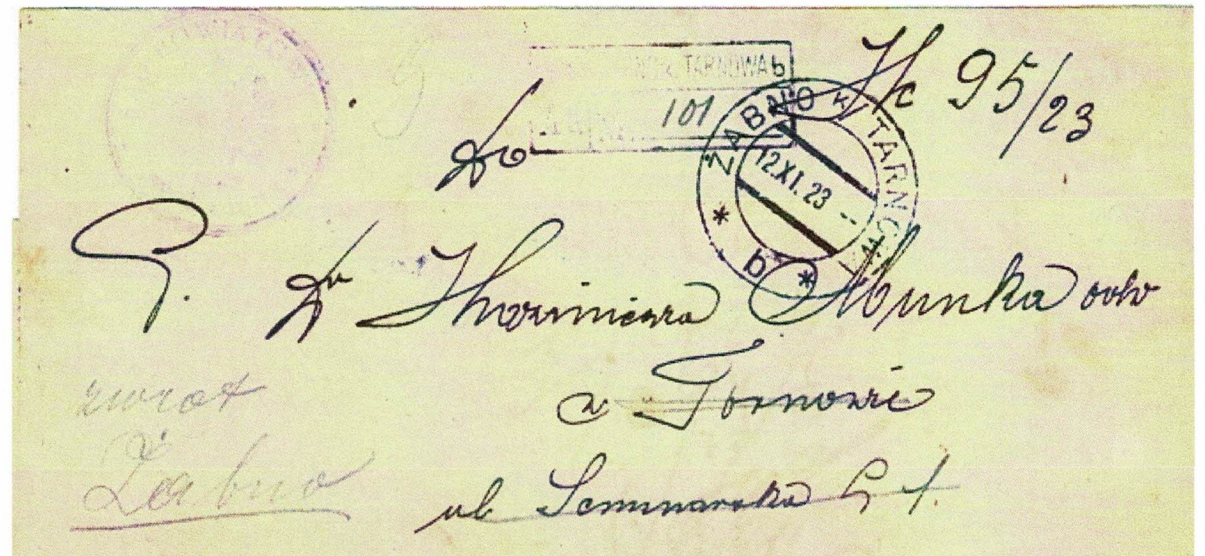 TARNOWA b
101
Nc 95/23
Do
ŻABNO k/ TARNOWA
12.XI.23
* b *
P. Dr Kazimierza Munka adw
w Tarnowie
ul Seminarska L 1.
zwrot
Żabno